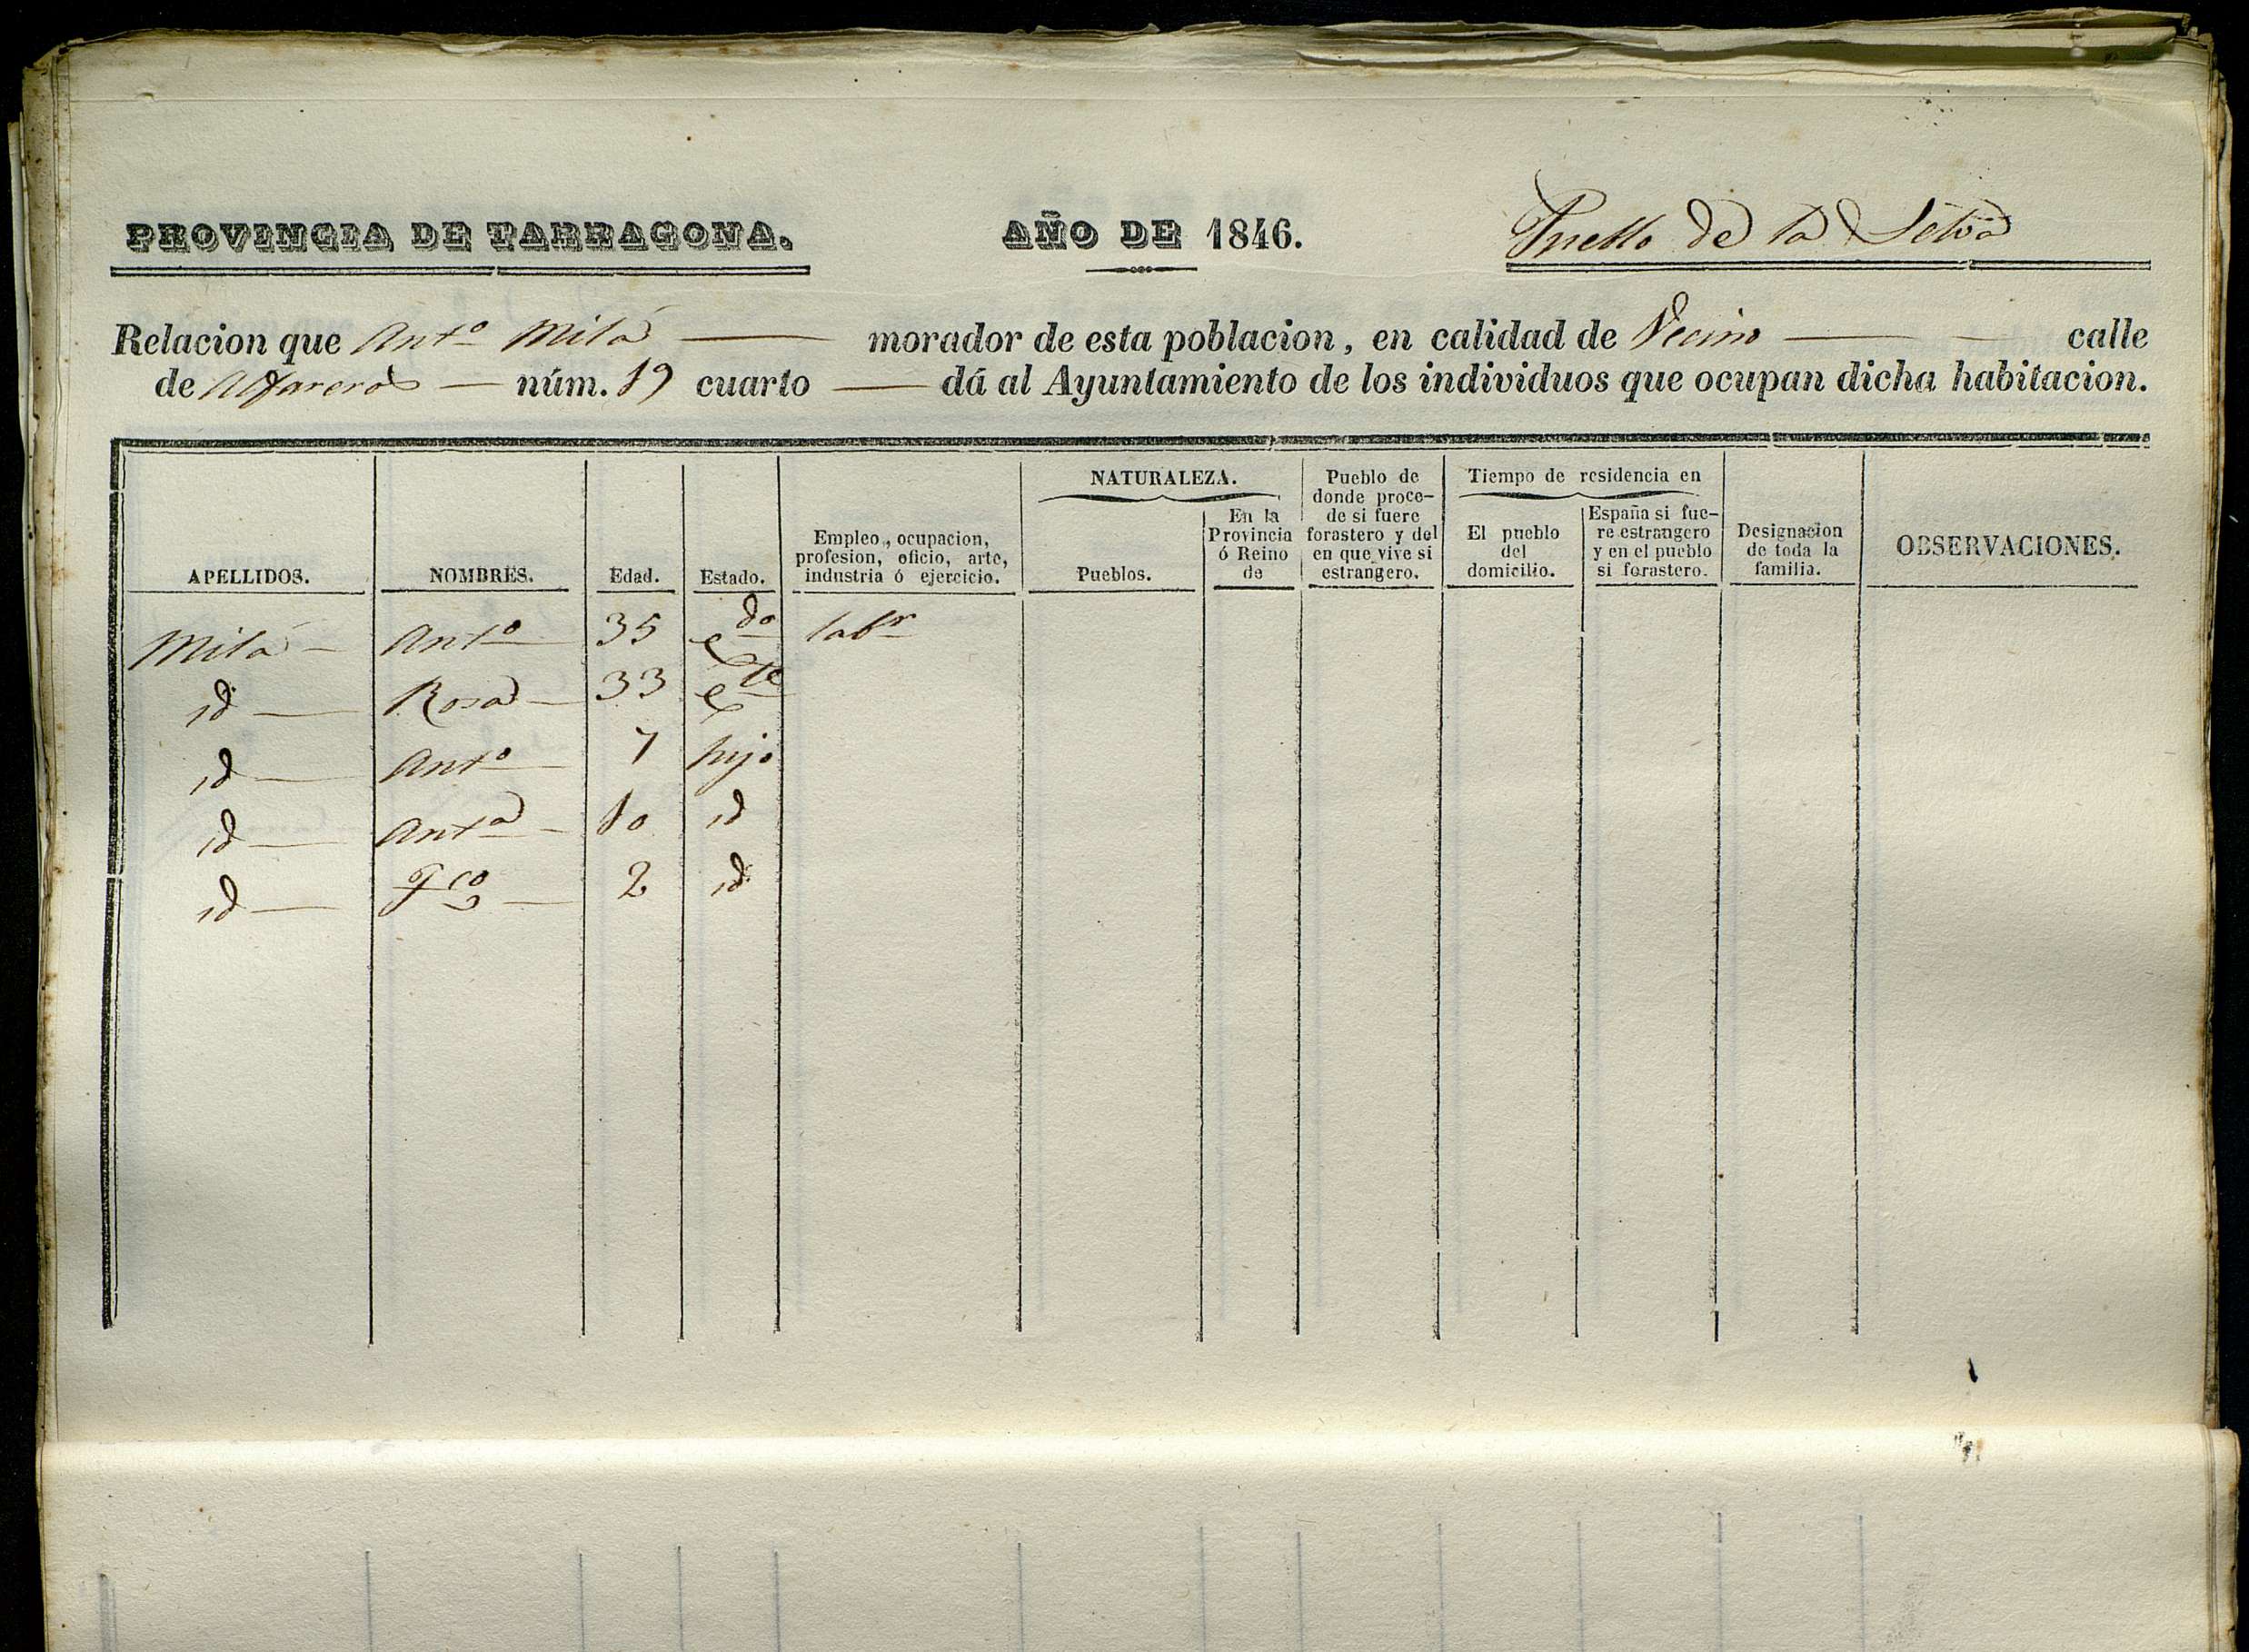 PROVINCIA DE TARRAGONA. AÑO DE 1846. Pueblo de la Selva
Relacion que Antº Milá morador de esta poblacion, en calidad de Vecino calle
de Alfareros núm. 19 cuarto dá al Ayuntamiento de los individuos que ocupan dicha habitacion.
APELLIDOS.
NOMBRES.
Edad.
Estado.
Empleo, ocupacion,
profesion, oficio, arte,
industria ó ejercicio.
NATURALEZA.
Pueblos.
En la
Provincia
ó Reino
de
Pueblo de
donde proce-
de si fuere
forastero y del
en que vive si
estrangero.
Tiempo de residencia en
El pueblo
del
domicilio.
España si fue-
re estrangero
y en el pueblo
si forastero.
Designacion
de toda la
familia.
OBSERVACIONES.
Milá Antº 35 cdo labr
id Rosa 33 cte
id Antº 7 hijo
id Antª 10 id
id Fco 2 id